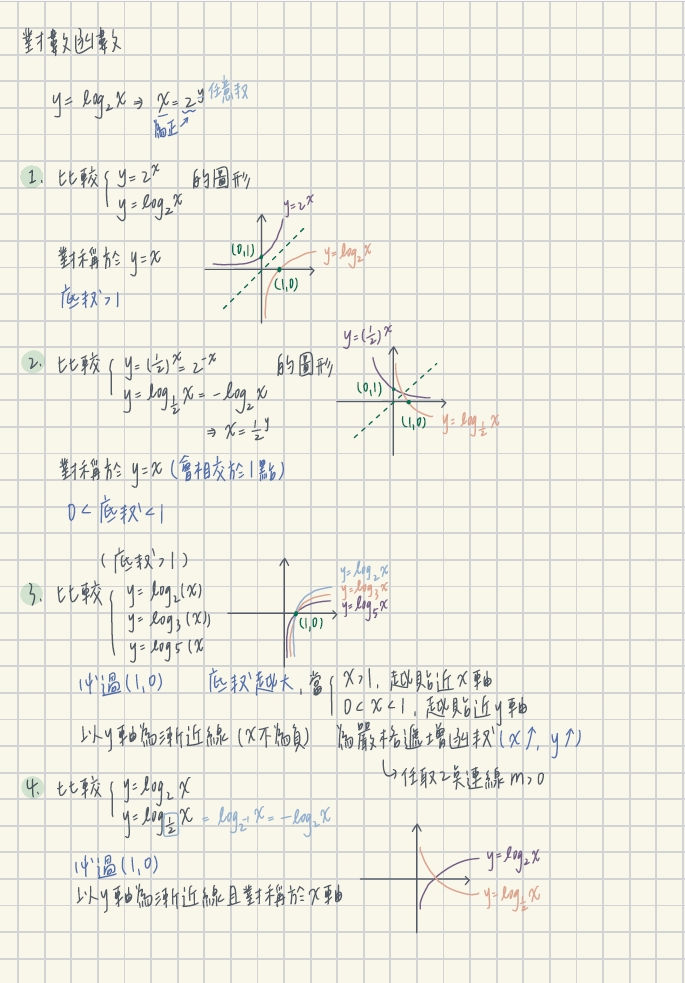 對數函數
y = log₂x ⇒ x = 2^y 任意數
為正
1. 比較 { y = 2^x 的圖形
y = log₂x
y = 2^x
(0,1)
y = log₂x
(1,0)
對稱於 y = x
底數 > 1
2. 比較 { y = (1/2)^x = 2^-x 的圖形
y = log_{1/2} x = -log₂x
⇒ x = 1/2^y
y = (1/2)^x
(0,1)
(1,0)
y = log_{1/2} x
對稱於 y = x (會相交於1點)
0 < 底數 < 1
(底數 > 1)
3. 比較 { y = log₂(x)
y = log₃(x)
y = log5(x
y = log₂x
y = log₃x
y = log₅x
(1,0)
必過(1,0) 底數越大, 當 { x > 1, 越貼近 x 軸
0 < x < 1, 越貼近 y 軸
以 y 軸為漸近線 (x 不為負) 為嚴格遞增函數 (x↑, y↑)
↳ 任取2點連線 m > 0
4. 比較 { y = log₂x
y = log_{1/2} x = log_{2^-1} x = -log₂x
必過(1,0)
以 y 軸為漸近線且對稱於 x 軸
y = log₂x
y = log_{1/2} x